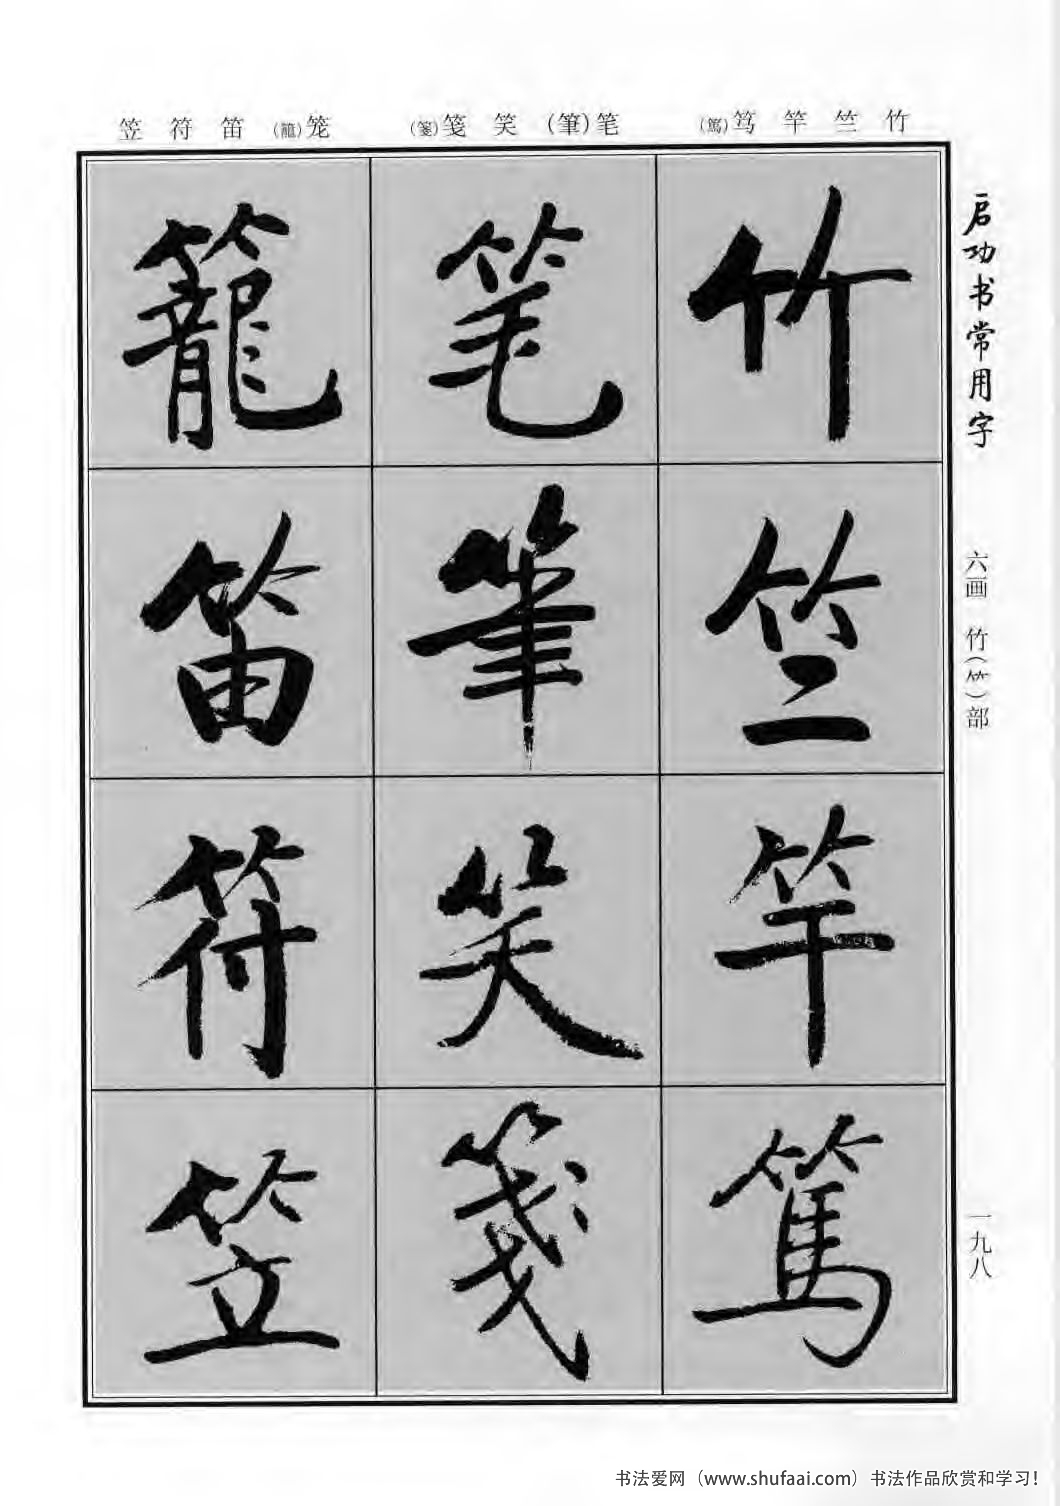 启功书常用字
六画 竹(⺮)部
一九八
竹 竺 竿 笃(篤)
笔(筆) 笑 笺(箋)
笼(籠) 笛 符 笠
竹
竺
竿
篤
笔
筆
笑
箋
籠
笛
符
笠
书法爱网（www.shufaai.com）书法作品欣赏和学习!